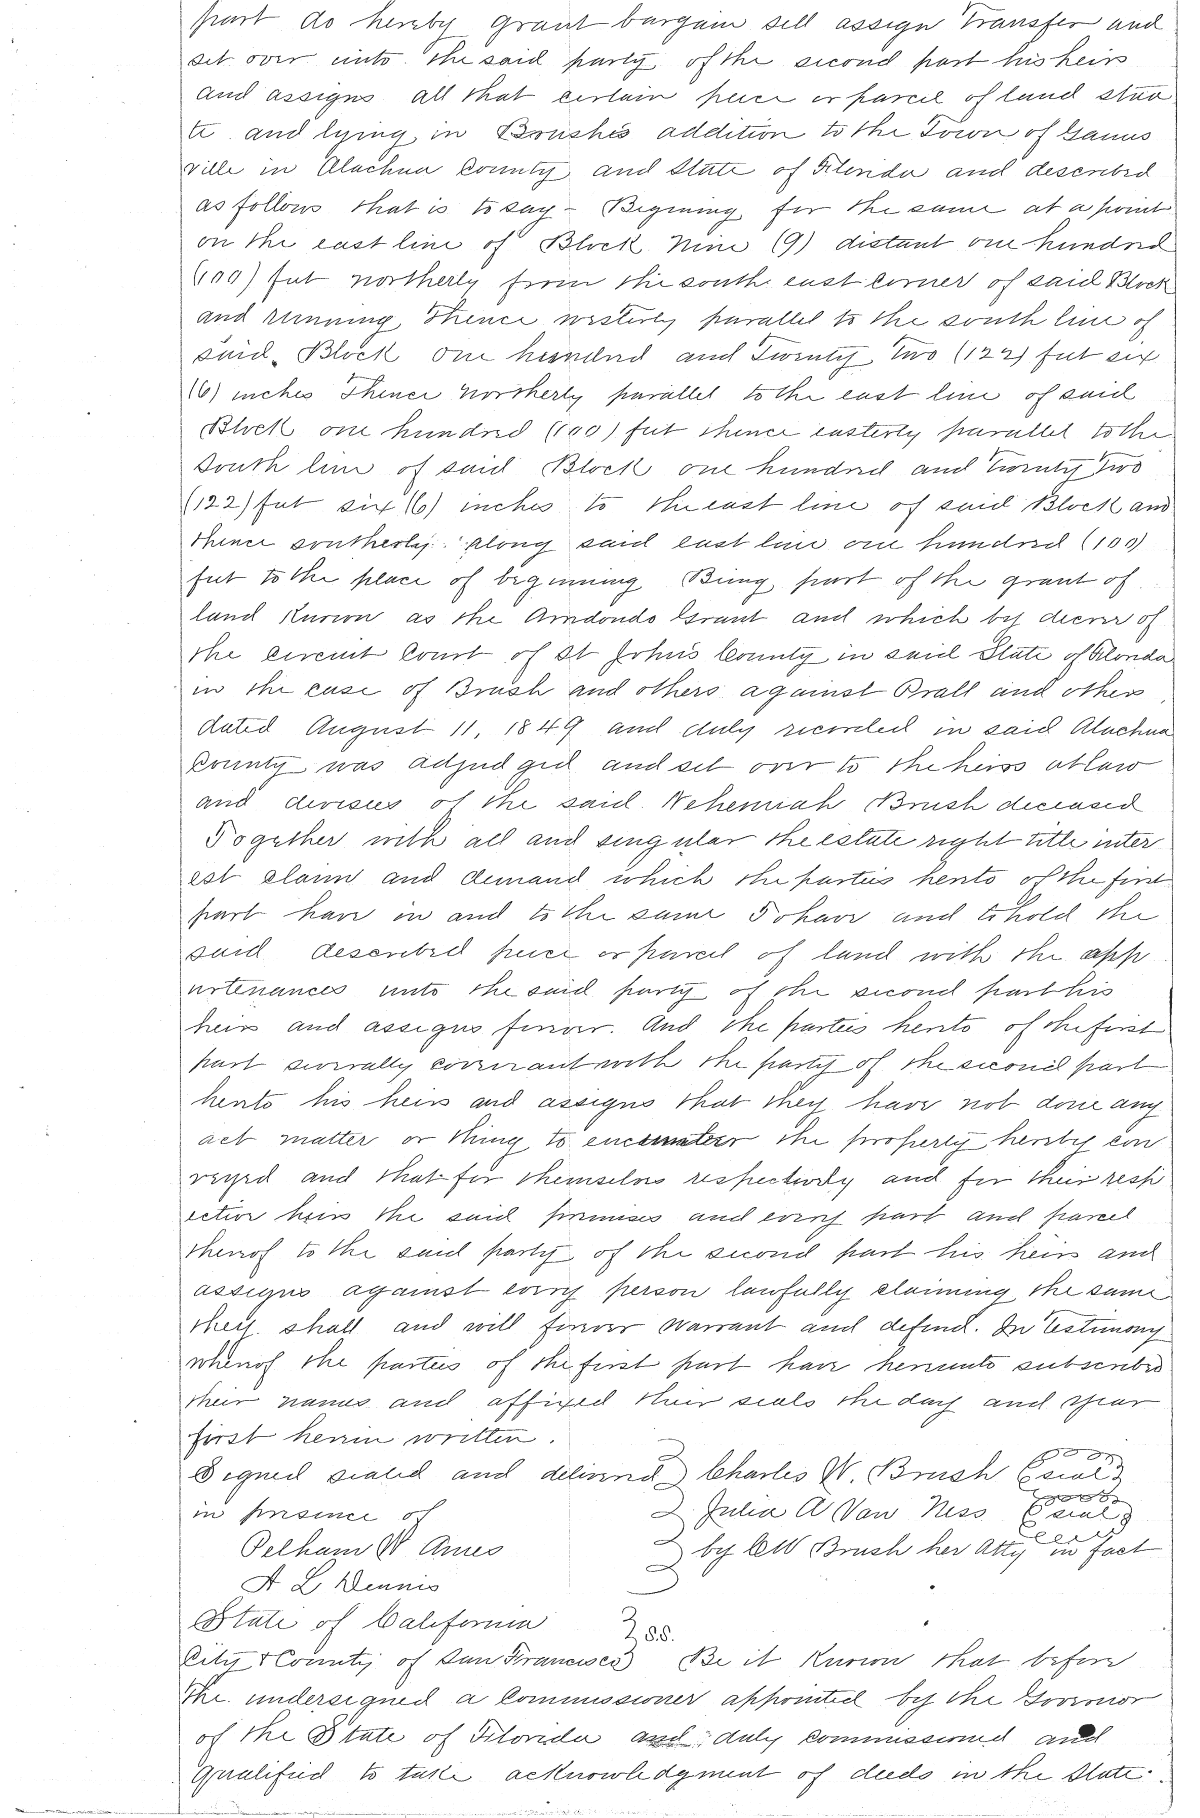 part do hereby grant bargain sell assign Transfer and
set over unto the said party of the second part his heirs
and assigns all that certain peice or parcel of land situa
te and lying in Brushes addition to the Town of Gaines
ville in Alachua County and State of Florida and described
as follows that is to say - Begining for the same at a point
on the east line of Block Nine (9) distant one hundred
(100) feet northerly from the south east corner of said Block
and running Thence westerly parallel to the south line of
said Block one hundred and Twenty Two (122) feet six
(6) inches Thence Northerly parallel to the east line of said
Block one hundred (100) feet thence easterly parallel to the
South line of said Block one hundred and Twenty Two
(122) feet six (6) inches to the east line of said Block and
thence southerly along said east line one hundred (100)
feet to the place of beginning Being part of the grant of
land Known as the Arredondo Grant and which by decree of
the circuit Court of St Johns County in said State of Florida
in the case of Brush and others against Prall and others
dated August 11, 1849 and duly recorded in said Alachua
County was adjudged and set over to the heirs at law
and devisees of the said Nehemiah Brush deceased
Together with all and singular the estate right title inter
est claim and demand which the parties hereto of the first
part have in and to the same To have and to hold the
said described peice or parcel of land with the app
urtenances unto the said party of the second part his
heirs and assigns forever. And the parties hereto of the first
part severally covenant with the party of the second part
hereto his heirs and assigns that they have not done any
act matter or thing to encumber the property hereby con
veyed and that for themselves respectively and for their resp
ective heirs the said premises and every part and parcel
thereof to the said party of the second part his heirs and
assigns against every person lawfully claiming the same
they shall and will forever warrant and defend. In Testimony
whereof the parties of the first part have hereunto subscribed
their names and affixed their seals the day and year
first herein written.
Signed sealed and delivered) Charles W. Brush (seal)
in presence of Julia A Van Ness (seal)
Pelham W Ames by CW Brush her Atty in fact
A L Dennis
State of California } s.s.
City & County of San Francisco) Be it Known that before
The undersigned a Commissioner appointed by the Governor
of the State of Florida and duly Commissioned and
Qualified to take acknowledgment of deeds in the State